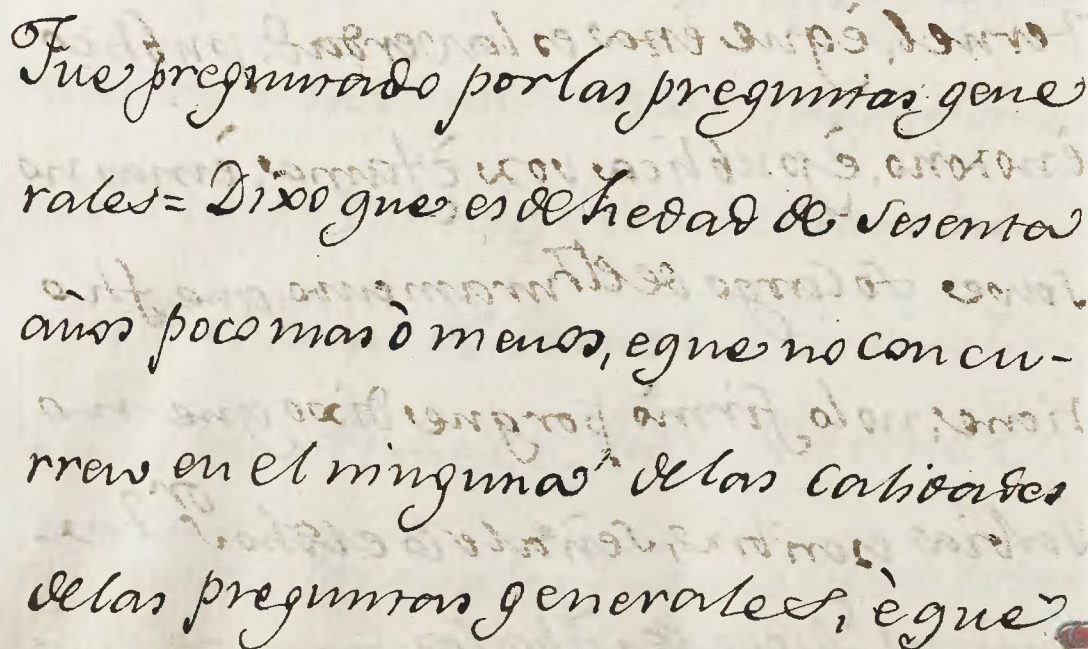 Fue preguntado por las preguntas gene
rales = Dixo que es de hedad de sesenta
años poco mas ò menos, e que no concu-
rren en el ninguna de las calidades
de las preguntas generales, è que